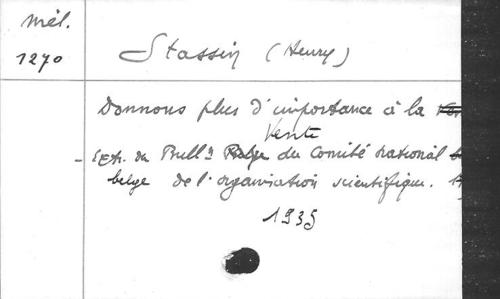 Mél.
1270
Stassin (Henry)
Donnons plus d'importance à la
Vente
- Extr. du Bull. du Comité national
belge de l'organisation scientifique.
1935